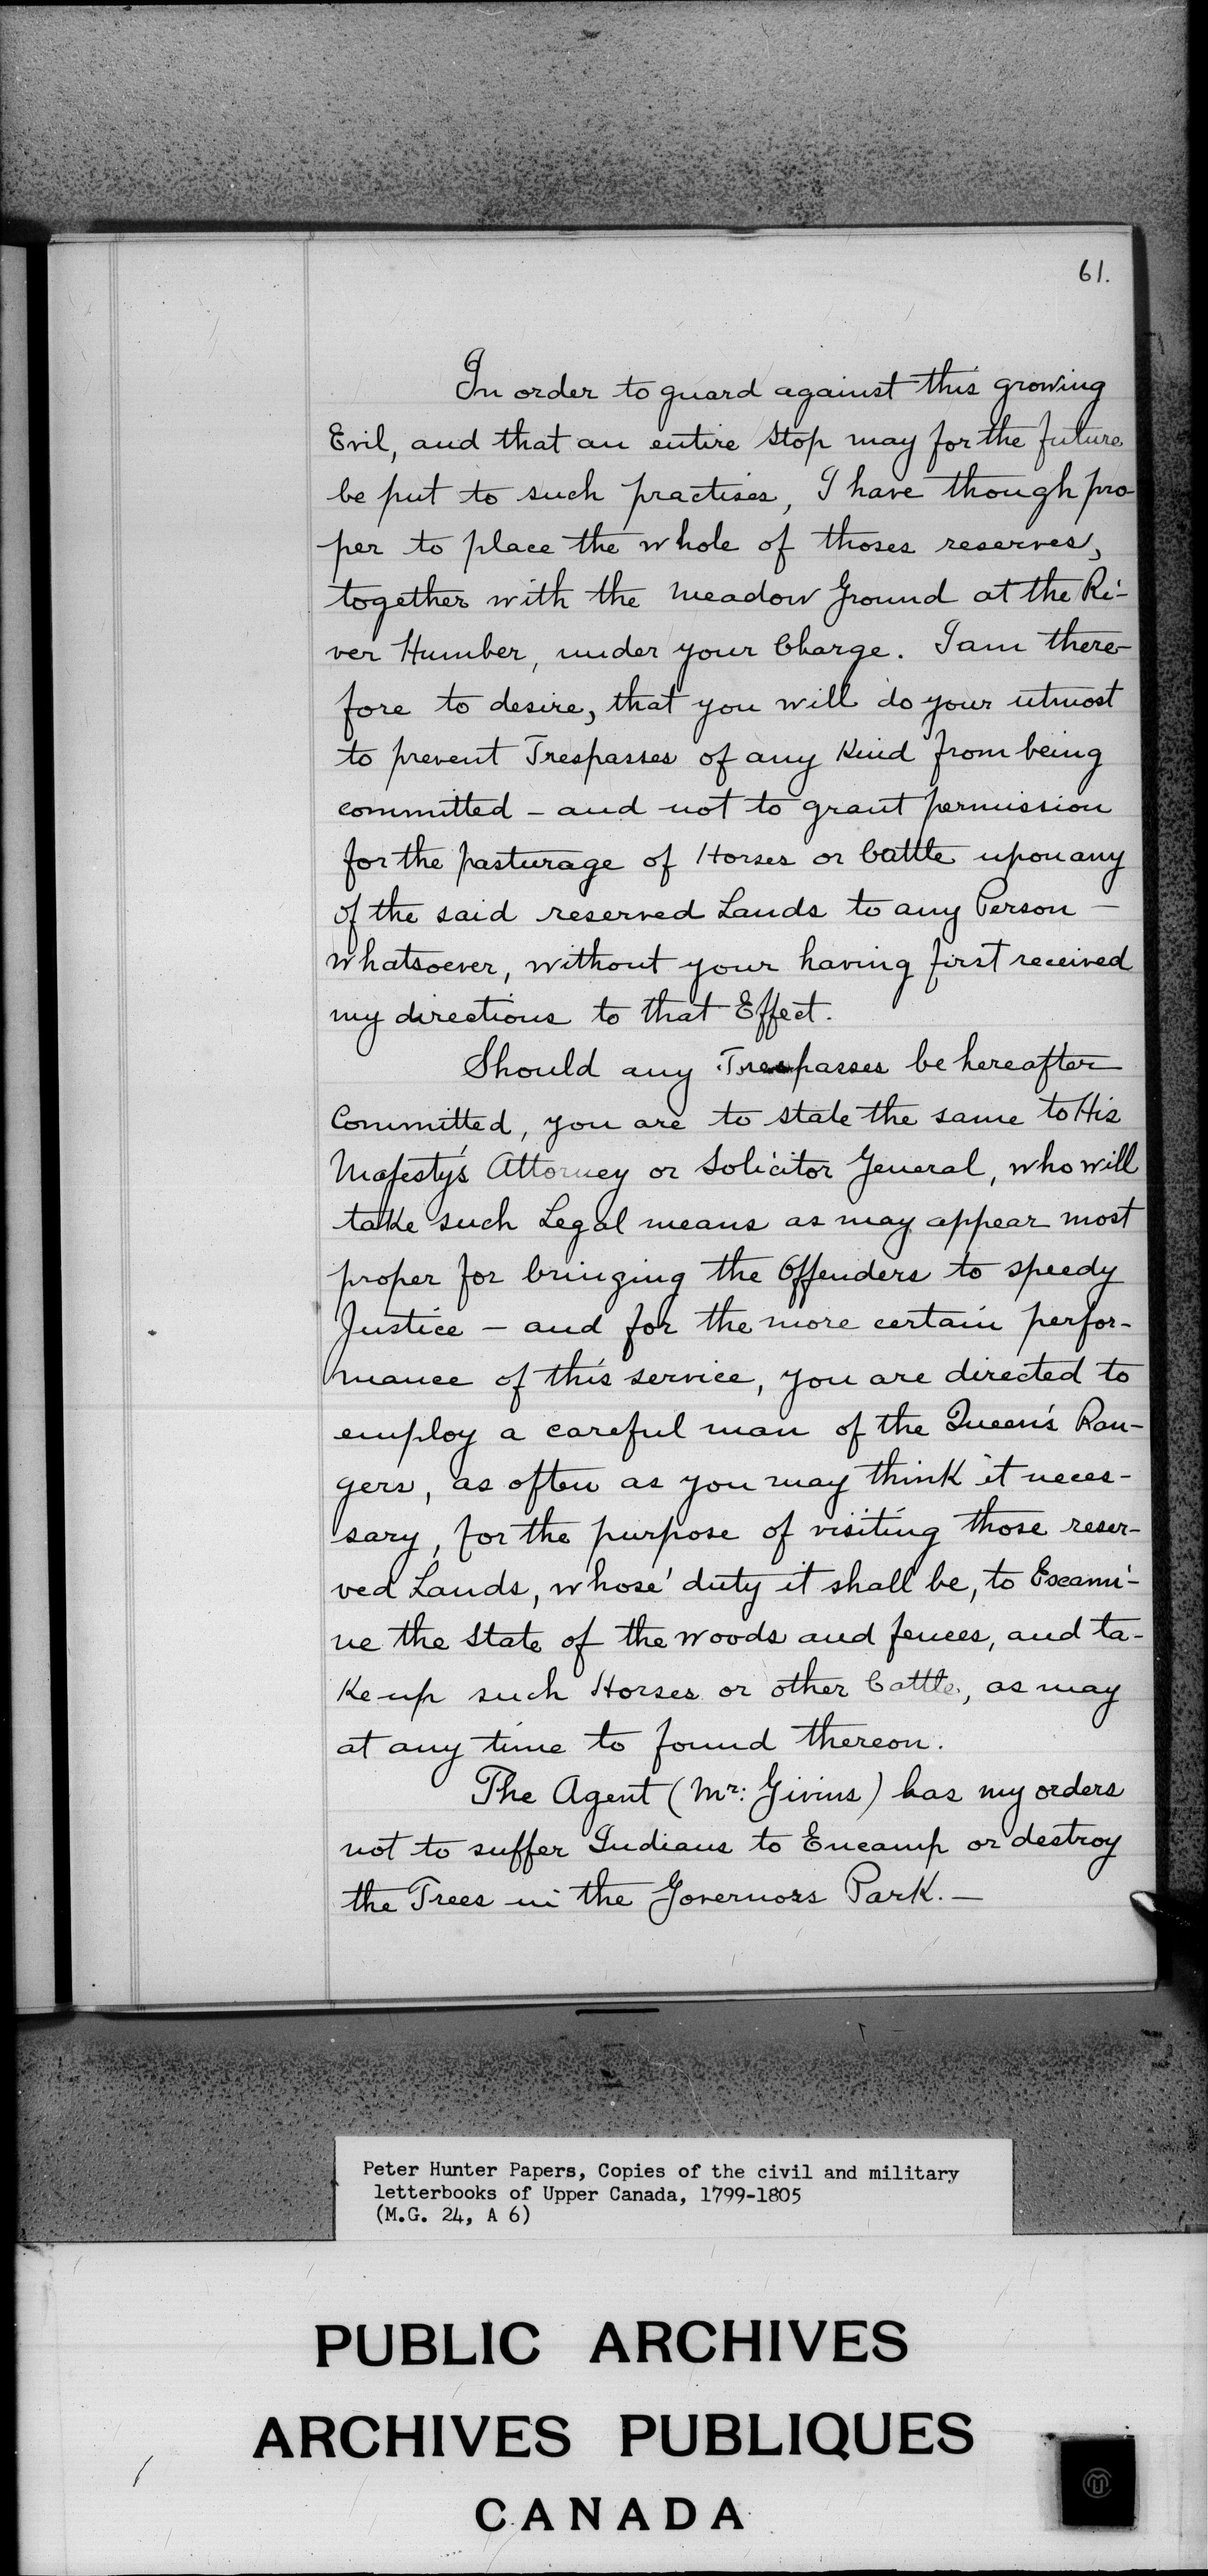 61.
In order to guard against this growing
Evil, and that an entire Stop may for the future
be put to such practises, I have though pro-
per to place the whole of thoses reserves,
together with the meadow Ground at the Ri-
ver Humber, under your Charge. I am there-
fore to desire, that you will do your utmost
to prevent Trespasses of any Kind from being
committed - and not to grant permission
for the pasturage of Horses or Cattle upon any
of the said reserved Lands to any Person —
whatsoever, without your having first received
my directions to that Effect.
Should any Trespasses be hereafter
Committed, you are to state the same to His
Majesty's Attorney or Solicitor General, who will
take such Legal means as may appear most
proper for bringing the Offenders to speedy
Justice - and for the more certain perfor-
mance of this service, you are directed to
employ a careful man of the Queen's Ran-
gers, as often as you may think it neces-
sary, for the purpose of visiting those reser-
ved Lands, whose duty it shall be, to Exami-
ne the State of the woods and fences, and ta-
ke up such Horses or other Cattle, as may
at any time to found thereon.
The Agent (Mr: Givins) has my orders
not to suffer Indians to Encamp or destroy
the Trees in the Governors Park. —
Peter Hunter Papers, Copies of the civil and military
letterbooks of Upper Canada, 1799-1805
(M.G. 24, A 6)
PUBLIC ARCHIVES
ARCHIVES PUBLIQUES
CANADA